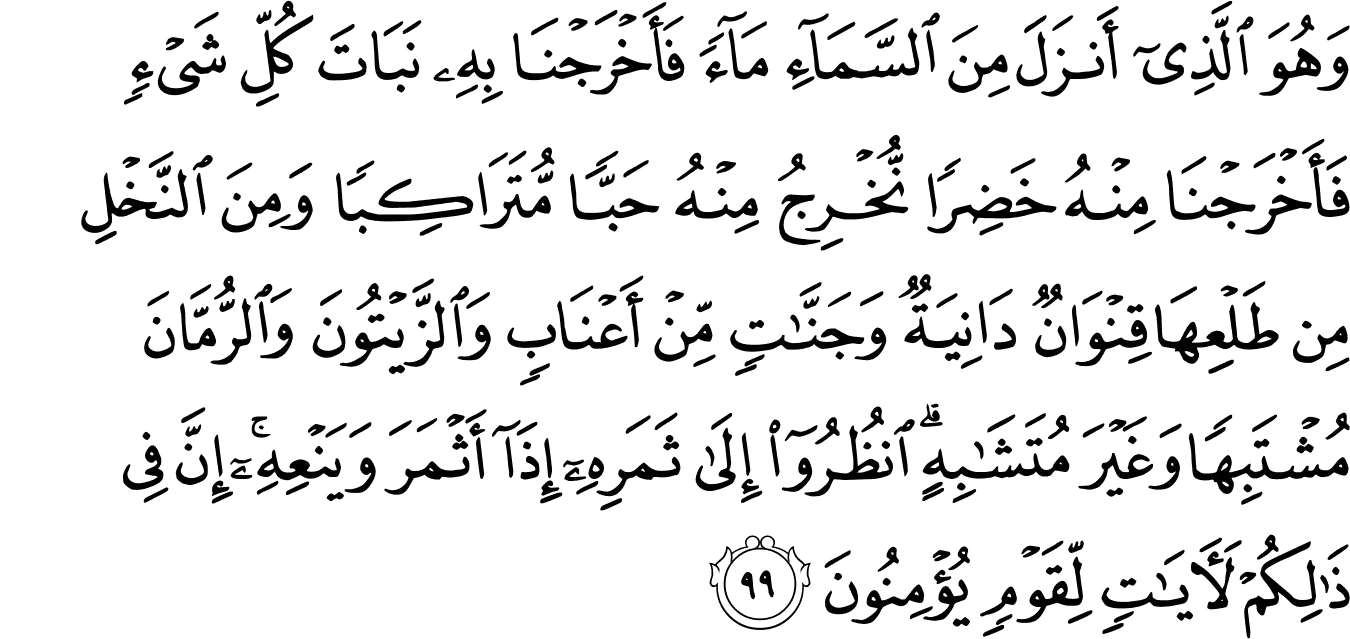 وَهُوَ ٱلَّذِىٓ أَنزَلَ مِنَ ٱلسَّمَآءِ مَآءً فَأَخْرَجْنَا بِهِۦ نَبَاتَ كُلِّ شَىْءٍ
فَأَخْرَجْنَا مِنْهُ خَضِرًا نُّخْرِجُ مِنْهُ حَبًّا مُّتَرَاكِبًا وَمِنَ ٱلنَّخْلِ
مِن طَلْعِهَا قِنْوَانٌ دَانِيَةٌ وَجَنَّـٰتٍ مِّنْ أَعْنَابٍ وَٱلزَّيْتُونَ وَٱلرُّمَّانَ
مُشْتَبِهًا وَغَيْرَ مُتَشَـٰبِهٍ ۗ ٱنظُرُوٓا۟ إِلَىٰ ثَمَرِهِۦٓ إِذَآ أَثْمَرَ وَيَنْعِهِۦٓ ۚ إِنَّ فِى
ذَٰلِكُمْ لَـَٔايَـٰتٍ لِّقَوْمٍ يُؤْمِنُونَ ٩٩